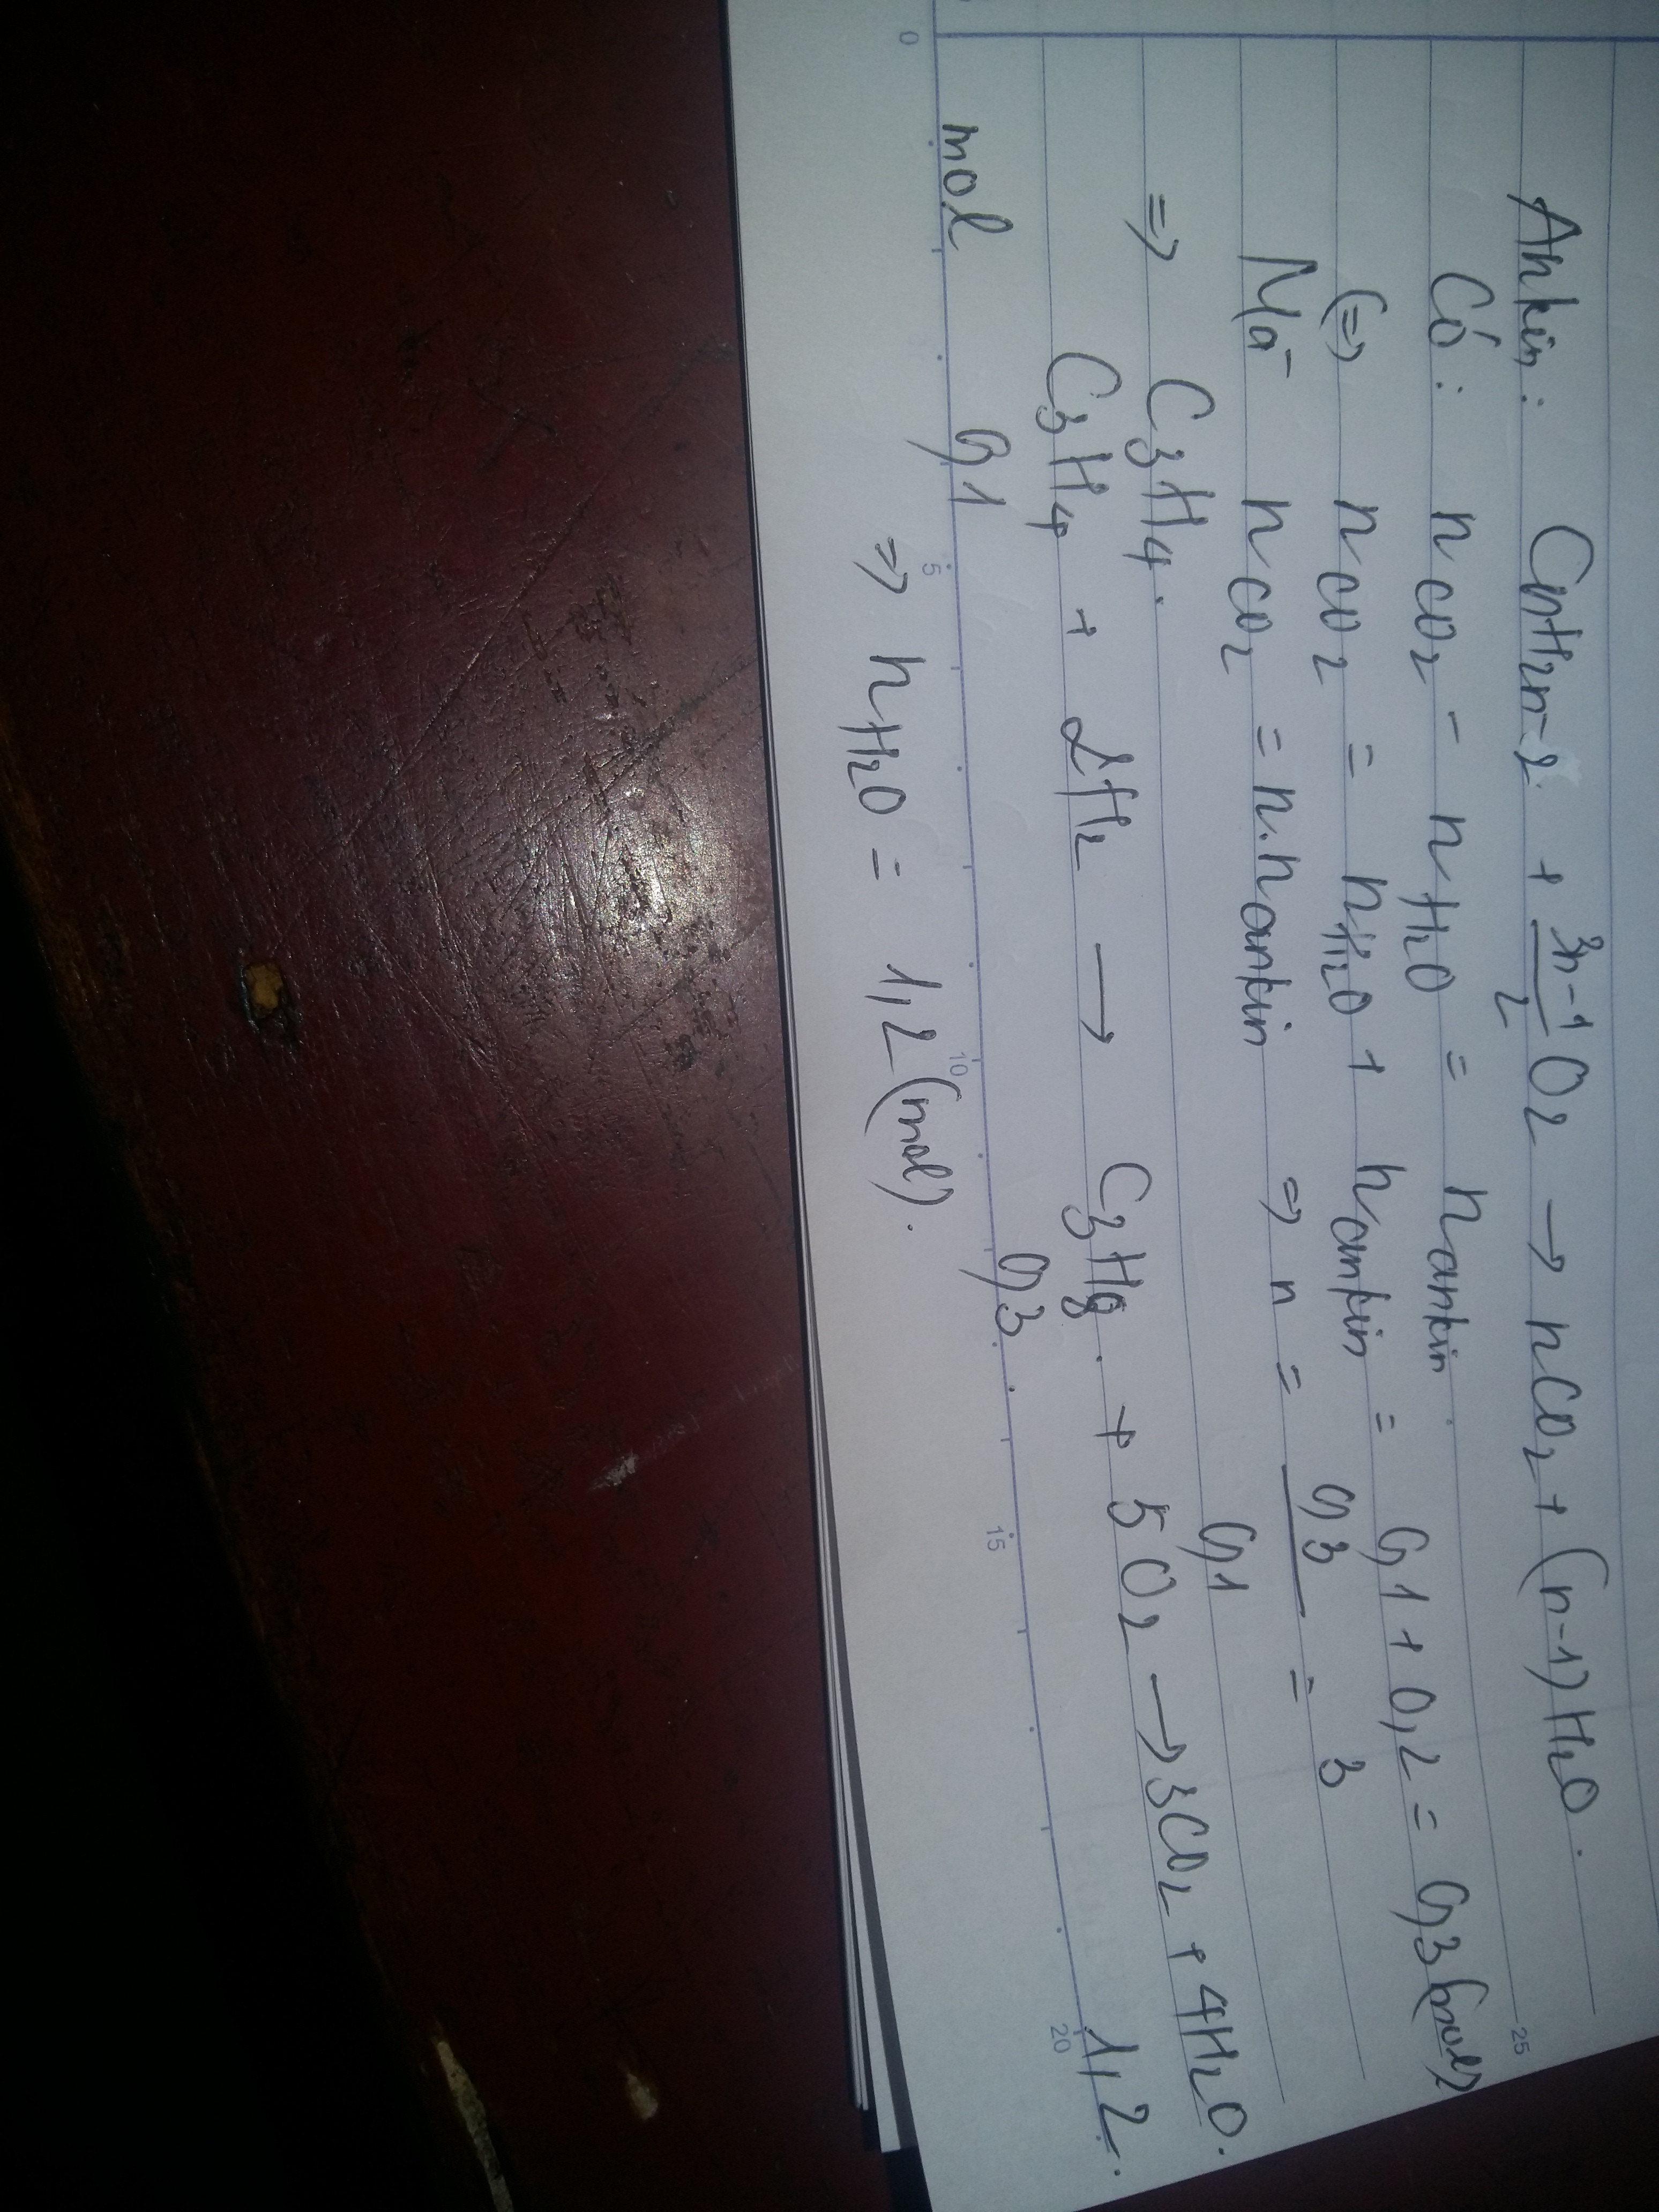 Ankin: CnH2n-2 + 3n-1/2 O2 → nCO2 + (n-1)H2O.
Có: nCO2 - nH2O = nankin.
(=> nCO2 = nH2O + nankin = 0,1 + 0,2 = 0,3 (mol)
Mà nCO2 = n.nankin => n = 0,3/0,1 = 3
=> C3H4.
C3H4 + 2H2 → C3H8. + 5O2 → 3CO2 + 4H2O.
mol 0,1 0,3. 1,2.
=> nH2O = 1,2 (mol).
0 5 10 15 20 25